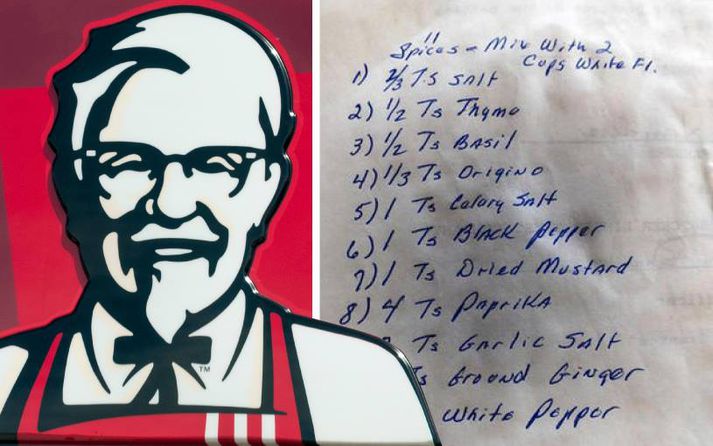 11
Spices - Mix With 2
Cups White Fl.
1) 2/3 Ts Salt
2) 1/2 Ts Thyme
3) 1/2 Ts Basil
4) 1/3 Ts Origino
5) 1 Ts Celary Salt
6) 1 Ts Black Pepper
7) 1 Ts Dried Mustard
8) 4 Ts Paprika
Ts Garlic Salt
Ts Ground Ginger
White Pepper
TM